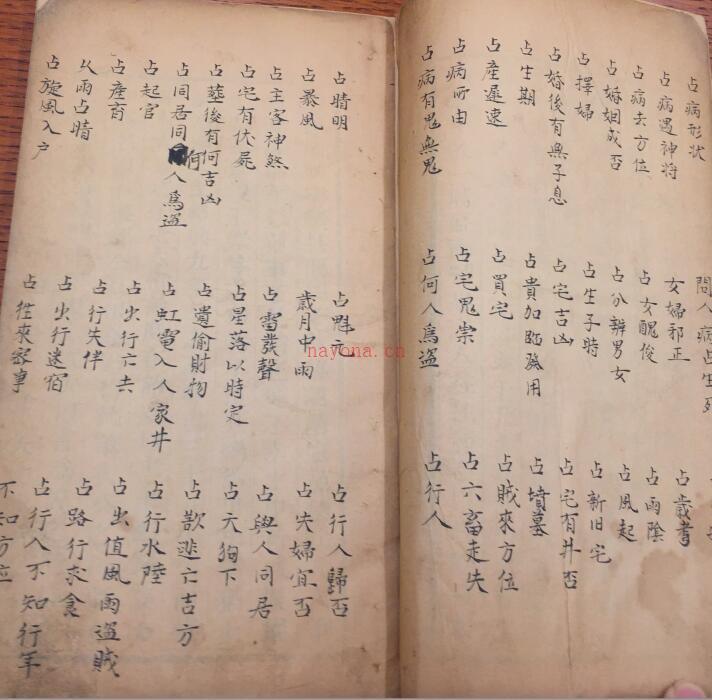 占病形状
占病遇神将
占病去方位
占婚姻成否
占擇婦
占婚後有無子息
占生期
占產遲速
占病所由
占病有鬼無鬼
問人病占生死
女婦邪正
占女醜俊
占分辨男女
占生子時
占宅吉凶
占貴加臨發用
占買宅
占宅鬼祟
占何人爲盗
占歲
占雨陰
占風起
占新旧宅
占宅有井否
占墳墓
占賊來方位
占六畜走失
占行人
占晴明
占暴風
占主客神煞
占宅有伏屍
占塟後有何吉凶
占同居同有人爲盗
占起官
占產育
久雨占晴
占旋風入户
占魁元
歲月中雨
占雷發聲
占星落以時定
占遺偷財物
占虹電入人家井
占出行亡去
占行失伴
占出行迷宿
占徃來家事
占行人歸否
占夫婦宜否
占與人同居
占天狗下
占逃亡吉方
占行水陸
占出值風雨盗賊
占路行求食
占行人不知行年
不知方位
nayona.cn